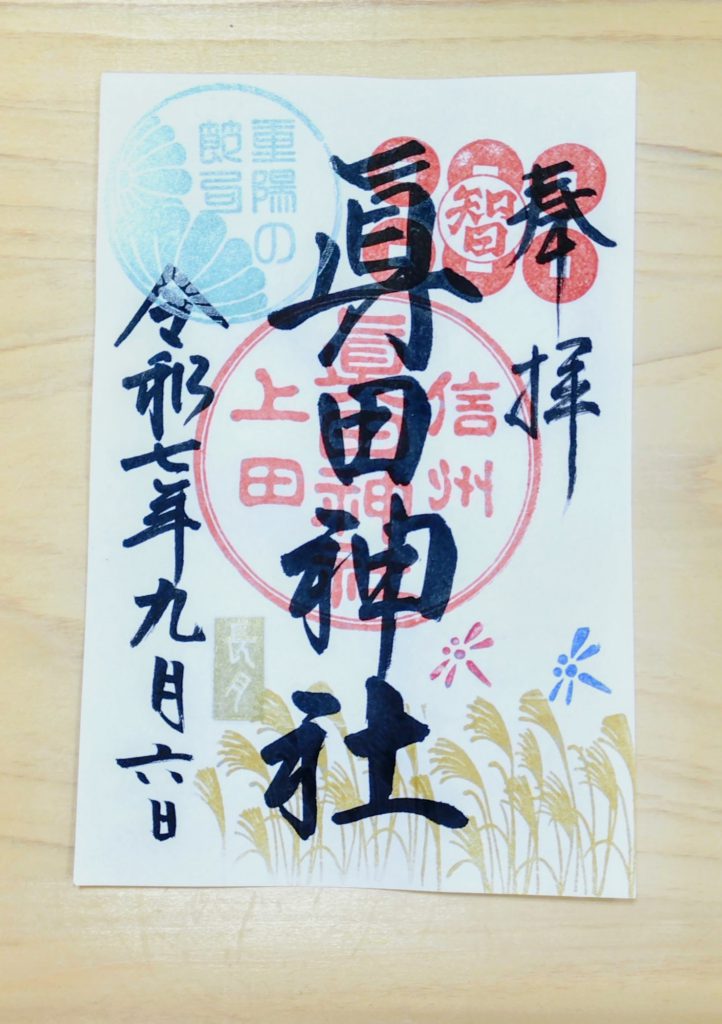 奉拝
智
眞田神社
信州
眞田神社
上田
重陽の
節句
長月
令和七年九月六日